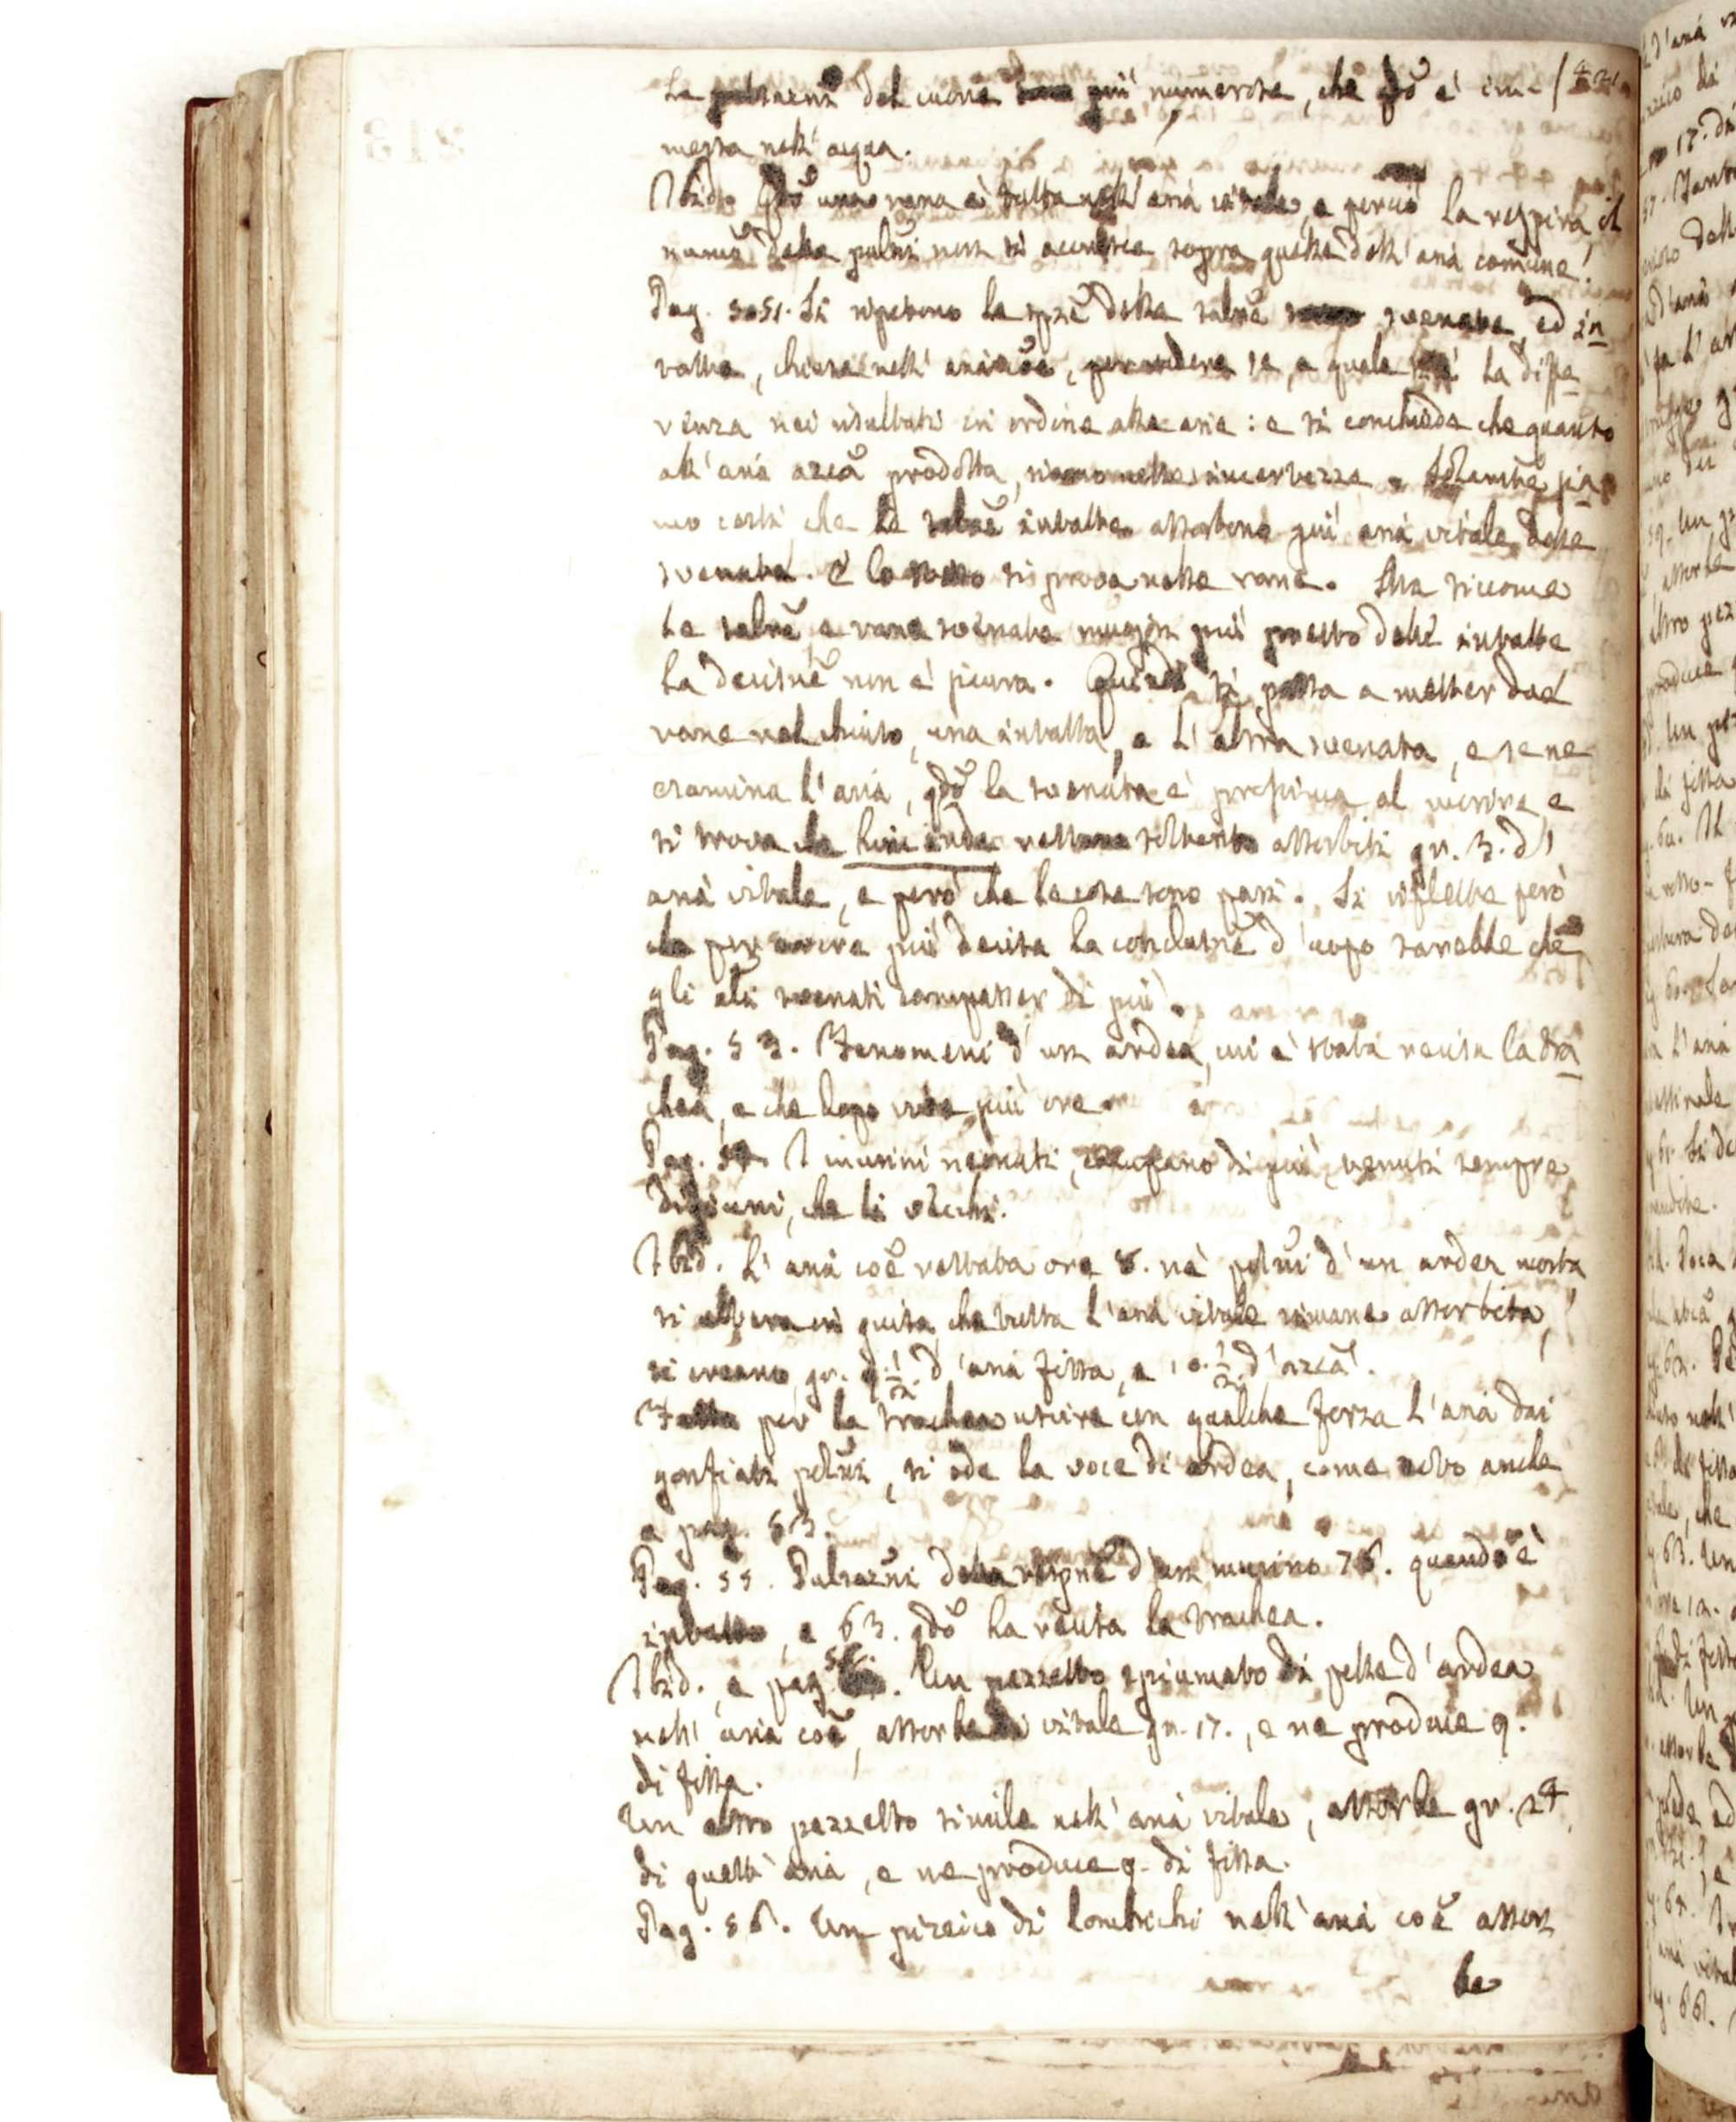 Le pulsazni del cuore sono più numerose, che qdo è im- | 421
messa nell' acqua.
Ibid. Qdo una rana è tutta nell' aria vitale, e perciò la respira, il
numo delle pulsni non si accresce sopra quelle dell' aria comune.
Pag. 5051. Si ripetono le spze delle salme svenate, ed in
tatte, chiuse nell' aria coe, per vedere se, e quale sia la diffe
renza nei risultati in ordine alle arie: e si conchiude che quanto
all' aria azca prodotta, siamo nelle incertezze. Solamente sia
mo certi che le salme intatte assorbono più aria vitale delle
svenate. E lo stesso si prova nelle rane. Ma siccome
le salme, e rane svenate muojon più presto delle intatte
la decisne non è sicura. Quindi si passa a metter due
rane nel chiuso, una intatta, e l' altra svenata, e se ne
esamina l' aria, qdo la svenata è prossima al morire, e
si trova che hinc inde restano soltanto assorbiti gr. 3. d'
aria vitale, e però che le cose sono pari. Si riflette però
che per essere più decisa la conclusne d' uopo sarebbe che
gli ali svenati campasser di più.
Pag. 53. Fenomeni d' un ardea, cui è stata recisa la tra
chea, e che dopo vive più ore.
Pag. 54. I musini neonati, campano di più, tenuti sempre
digiuni, che li vecchi.
Ibid. L' aria coe restata ore 8. ne' polmi d' un ardea morta
si altera in guisa, che tutta l' aria vitale rimane assorbita,
si creano gr. 9. 1/2. d' aria fissa, e 10. 1/2 d' azca.
Fatta per la trachea uscire con qualche forza l' aria dai
gonfiati polmni, si ode la voce di ardea, come noto anche
a pag. 53.
Pag. 55. Pulsazni della respne d' un musino 76. quando è
intatto, e 63. qdo ha recisa la trachea.
Ibid., e pag. 56. Un pezzetto spiumato di pelle d' ardea
nell' aria coe, assorbe di vitale gr. 17., e ne produce 9.
di fissa.
Un altro pezzetto simile nell' aria vitale, assorbe gr. 24
di quest' aria, e ne produce 9. di fissa.
Pag. 56. Un pizzico di lombrichi nell' aria coe assor
be